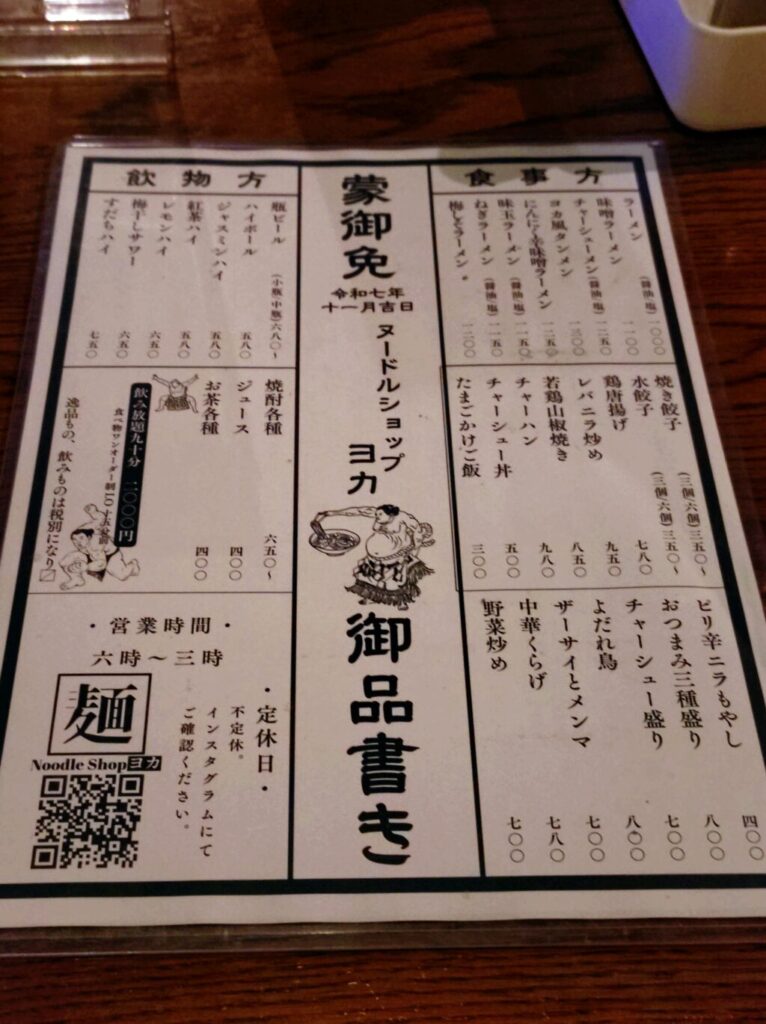 食事方
ラーメン (醤油 塩) 一〇〇〇
味噌ラーメン 一一〇〇
チャーシューメン (醤油 塩)
ヨカ風タンメン
にんにく辛味噌ラーメン
味玉ラーメン (醤油 塩)
ねぎラーメン (醤油 塩)
梅しそラーメン 一二〇〇
焼き餃子 (三個/六個) 三五〇〜
水餃子 (三個/六個) 三五〇〜
鶏唐揚げ 七八〇
レバニラ炒め 九五〇
若鶏山椒焼き 八五〇
チャーハン 九八〇
チャーシュー丼 五〇〇
たまごかけご飯 三〇〇
ピリ辛ニラもやし 四〇〇
おつまみ三種盛り 八〇〇
チャーシュー盛り 七〇〇
よだれ鳥 八〇〇
ザーサイとメンマ 七〇〇
中華くらげ 七八〇
野菜炒め 七〇〇
蒙御免
令和七年
十一月吉日
ヌードルショップ
ヨカ
御品書き
飲物方
瓶ビール (小瓶 中瓶) 六八〇〜
ハイボール 五八〇
ジャスミンハイ 五八〇
紅茶ハイ 五八〇
レモンハイ 六五〇
梅干しサワー 六五〇
すだちハイ 七五〇
焼酎各種 六五〇〜
ジュース 四〇〇
お茶各種 四〇〇
飲み放題九十分 二〇〇〇円
食べ物ワンオーダー制
逸品もの、飲みものは税別になり〼
・営業時間・
六時〜三時
・定休日・
不定休。
インスタグラムにて
ご確認ください。
麺
Noodle Shopヨカ